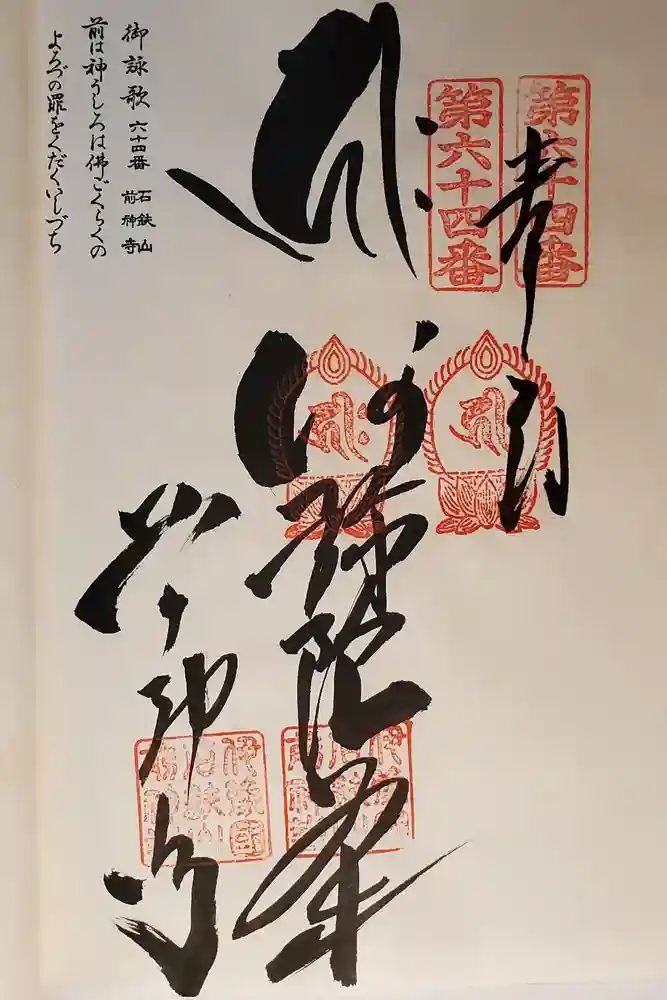 第六十四番
第六十四番
奉
阿弥陀
前神寺
伊豫國
石鉄山
前神寺
御詠歌 六十四番 石鉄山 前神寺
前は神うしろは佛ごくらくの
よろづの罪をくだくいしづち